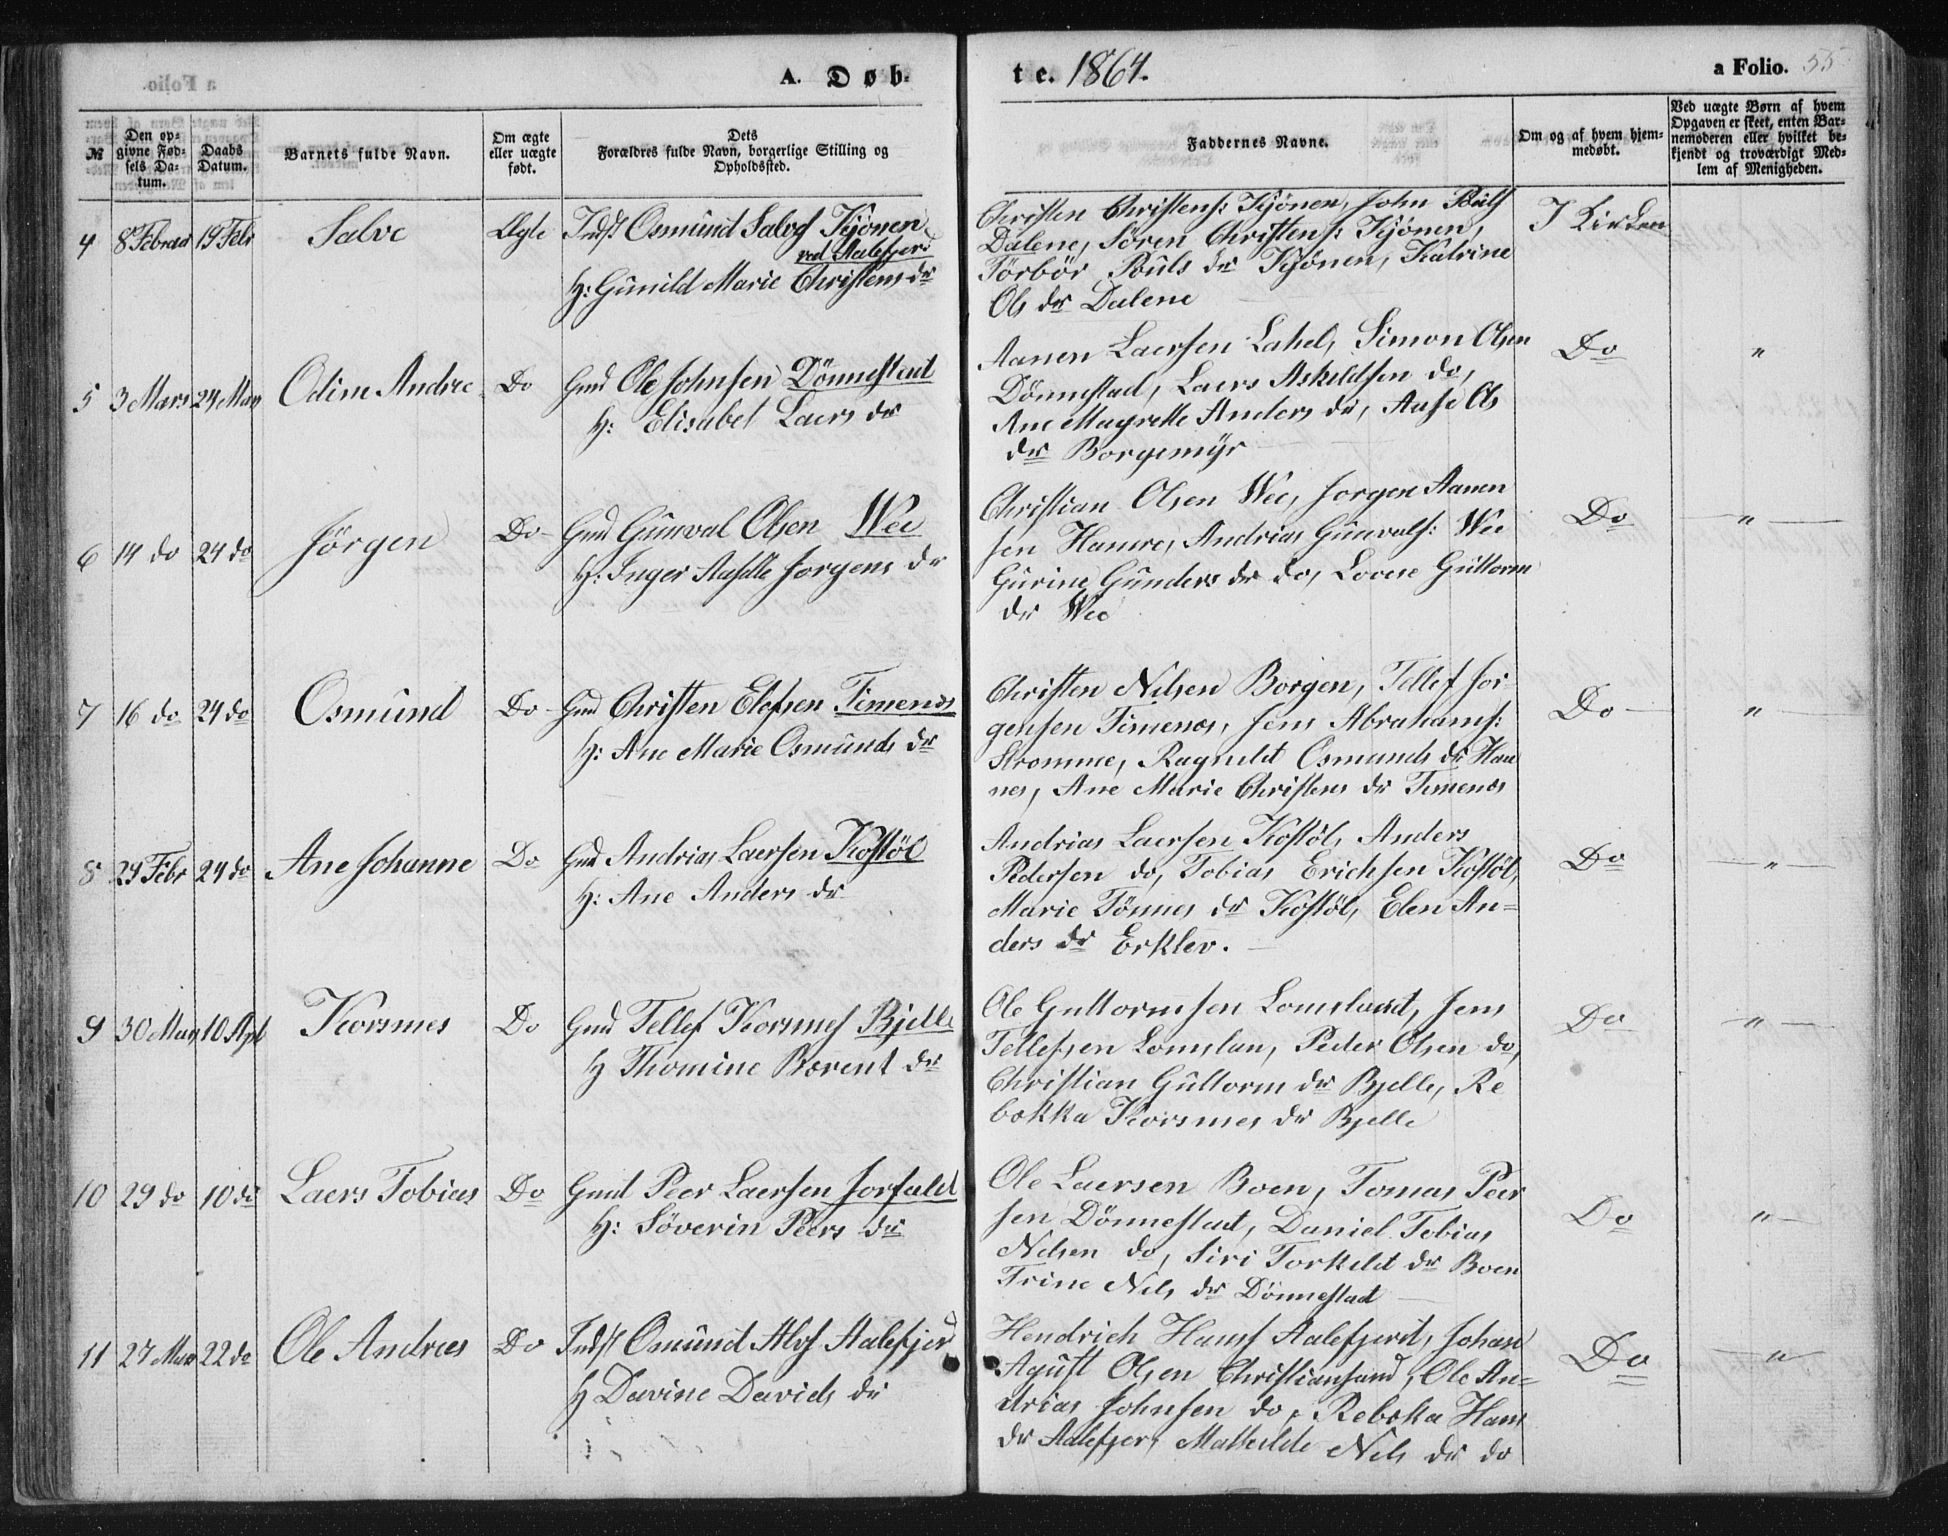 A. Døb-
te. 1864.
a Folio. 55
№
Den op-
givne Fød-
sels Da-
tum.
Daabs
Datum.
Barnets fulde Navn.
Om ægte
eller uægte
født.
Dets
Forældres fulde Navn, borgerlige Stilling og
Opholdssted.
Faddernes Navne.
Om og af hvem hjem-
medøbt.
Ved uægte Børn af hvem
Opgaven er skeet, enten Bar-
nemoderen eller hvilket be-
kjendt og troværdigt Med-
lem af Menigheden.
4 8 Februar 19 Febr Salve Ægte Indst Osmund Salves Kjönen
ved Aalefjer
H: Gunild Marie Christens dr
Christen Christens: Kjönen, John Pouls
Dalene, Sören Christens: Kjönen,
Törbör Pouls dr Kjönen, Katrine
Ols dr Dalene
I Kirken
5 3 Mars 24 Mar Odine Andree Do Gmd Ole Johnsen Dönnestad
H: Elisabet Laers dr
Aanen Laersen Lahel, Simon Olsen
Dönnestad, Laers Askildsen do,
Ane Magrethe Anders dr, Aase Ols
dr Borgemyr
Do "
6 14 do 24 do Jörgen Do Gmd Gunval Olsen Wee
H: Inger Aaselle Jorgens dr
Christian Olsen Wee, Jorgen Aanen
sen Hamre, Andrias Gunvals: Wee
Gurine Gunders dr do, Lovese Guttorm
dr Wee
Do "
7 16 do 24 do Osmund Do Gmd Christen Elefsen Timenes
H: Ane Marie Osmunds dr
Christen Nilsen Borgen, Tellef Jor-
gensen Timenes, Jens Abrahams:
Stromme, Ragnild Osmunds dr Han
nes, Ane Marie Christens dr Timenes
Do "
8 29 Febr 24 do Ane Johanne Do Gmd Andrias Laersen Kostöl
H: Ane Anders dr
Andrias Laersen Kostöl, Anders
Pedersen do, Tobias Erichsen Kostöl,
Marie Tönnes dr Kostöl, Elen An=
ders dr Erklev.
Do "
9 30 Mars 10 Apl Korsmes Do Gmd Tellef Korsmes Bjelle
H Thomine Berent dr
Ole Guttormsen Lomsland, Jens
Tellefsen Lomslan, Peder Olsen do,
Christian Guttorm dr Bjelle, Re
bokka Korsmes dr Bjelle
Do "
10 29 do 10 do Laers Tobias Do Gmd Peer Laersen Jorfald
H: Söverin Peers dr
Ole Laersen Boen, Tomas Peer
sen Dönnestad, Daniel Tobias
Nilsen do, Siri Torkild dr Boen
Trine Nils dr Dönnestad
Do "
11 27 Mar 22 do Ole Andrees Do Indst Osmund Alvs Aalefjer
H Davine Davids dr
Hendrich Hans Aalefjerd, Johan
Agust Olsen Christiansand, Ole An=
drias Johnsen do, Reboka Hans
dr Aalefjer, Mathilde Nils dr do
Do "